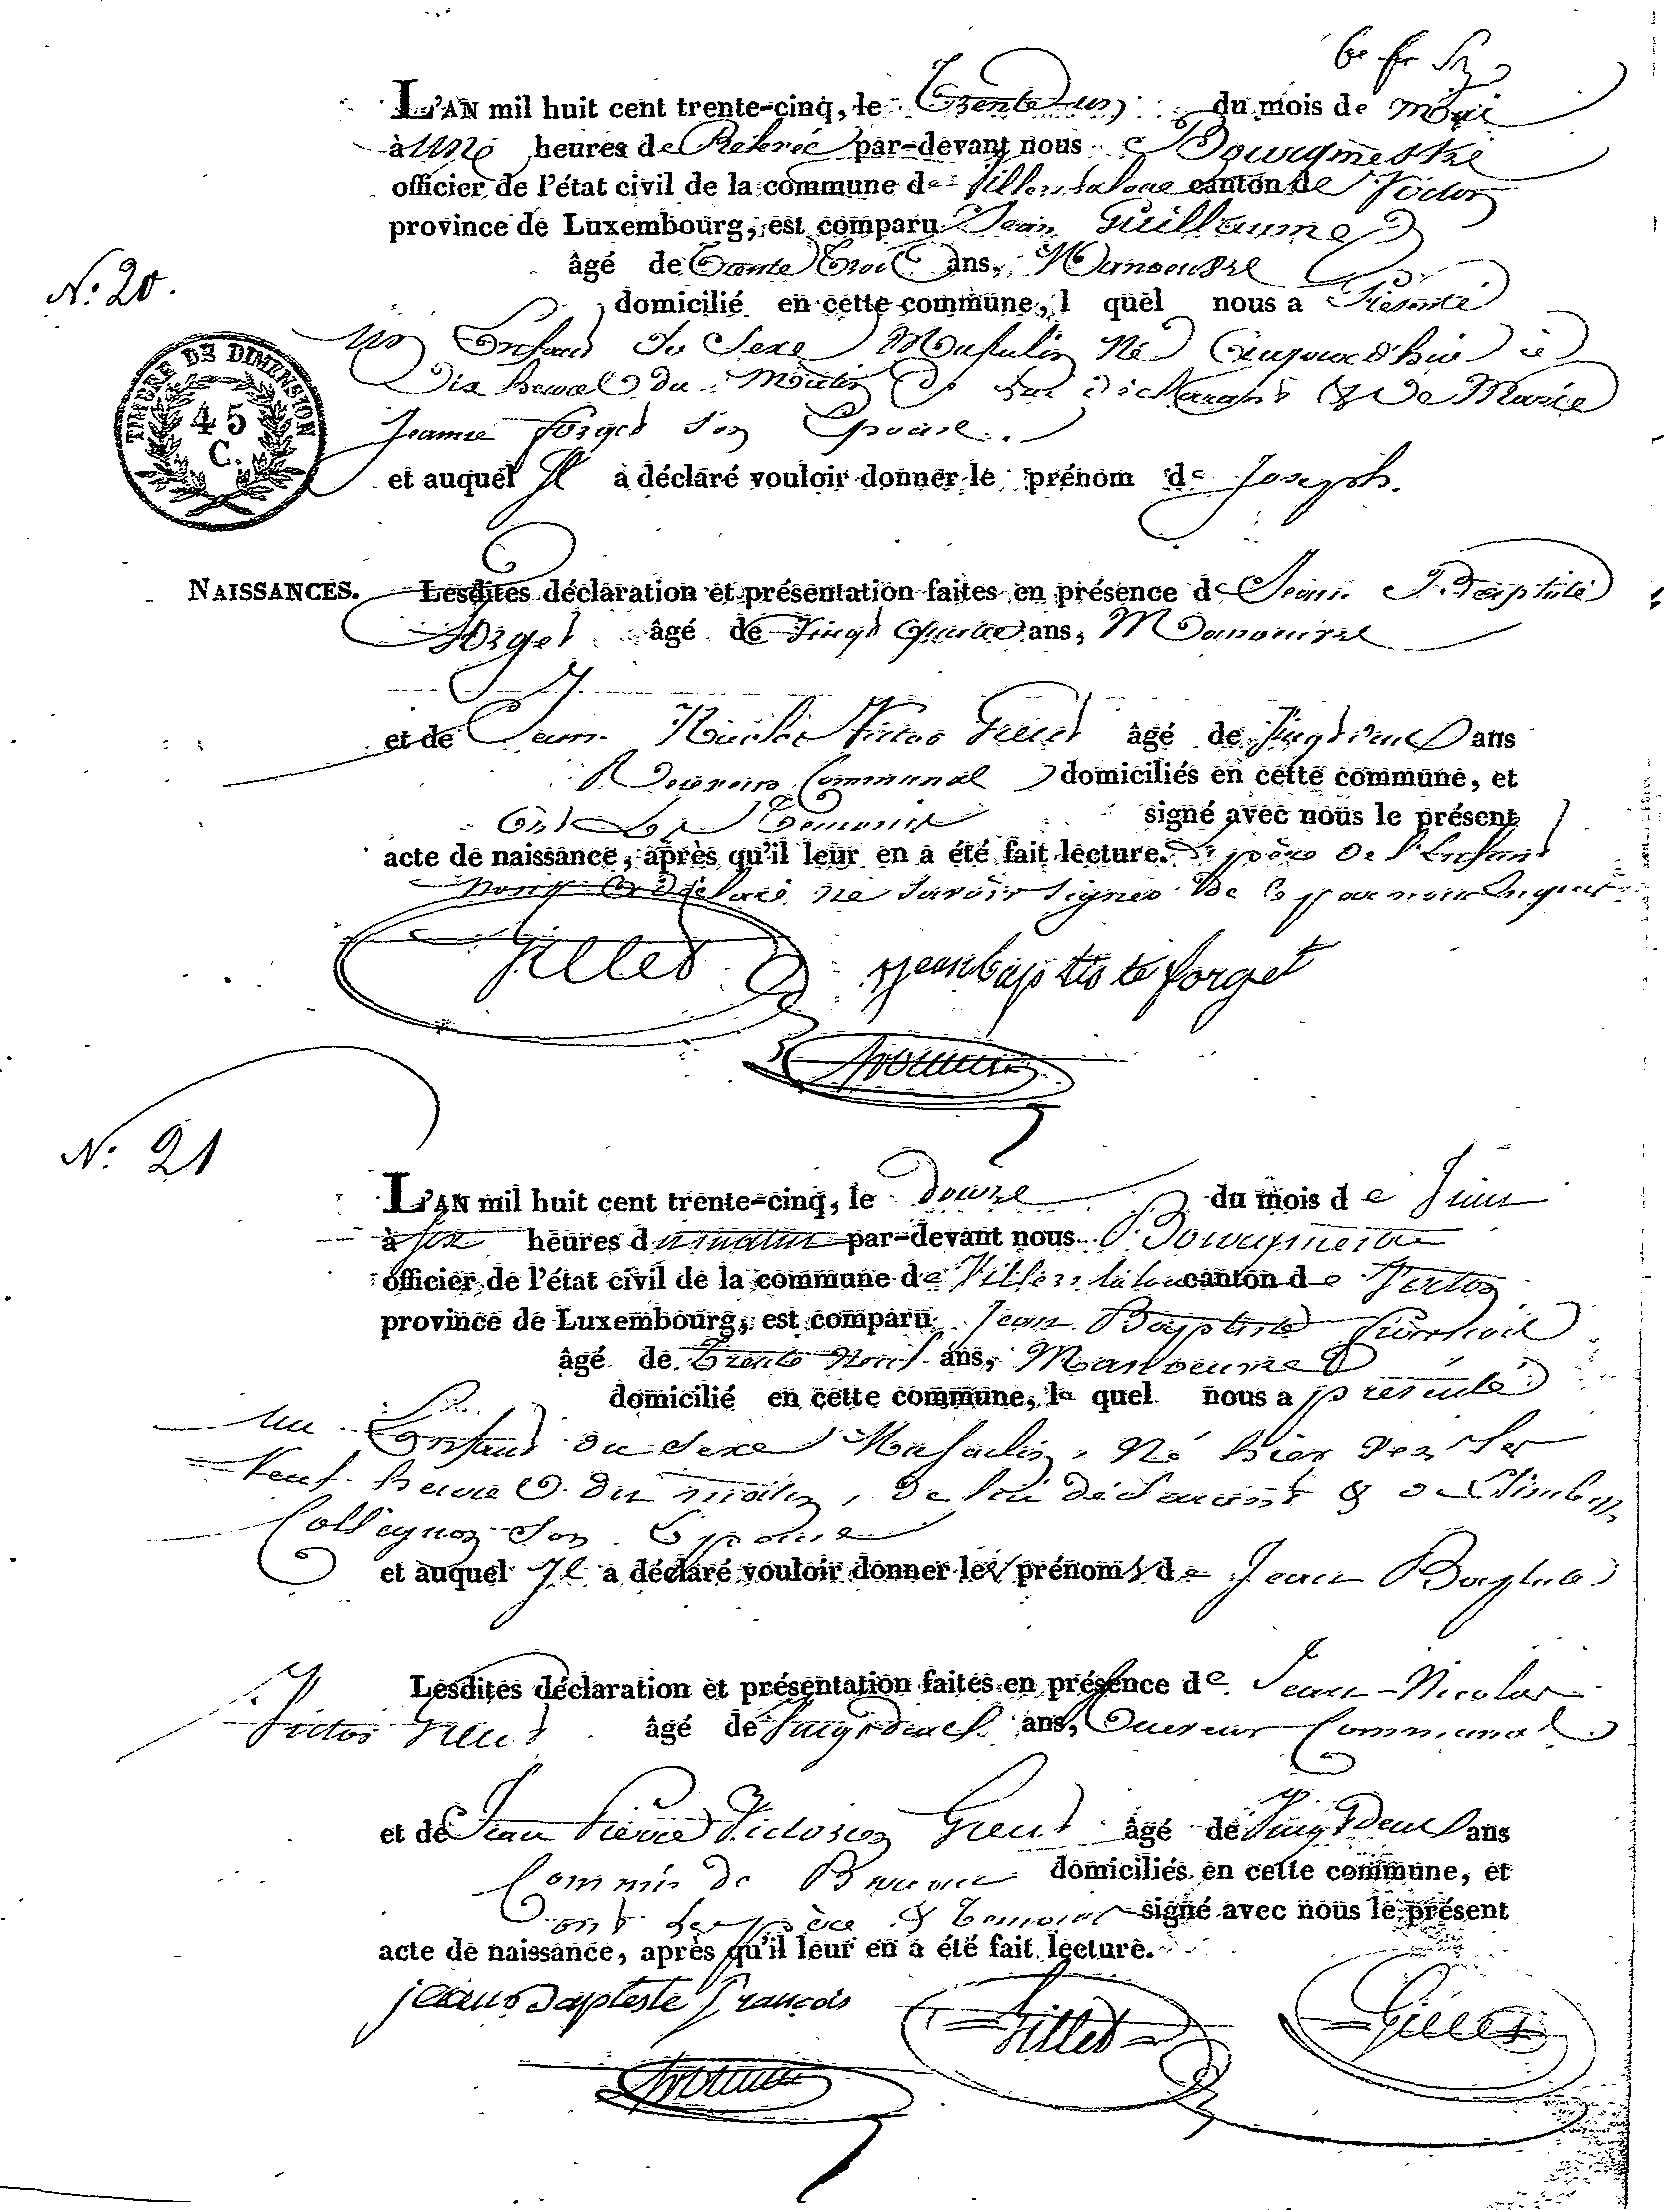 L'AN mil huit cent trente-cinq, le Trente un du mois de Mai
à une heures de Relevée par-devant nous Bourgmestre
officier de l'état civil de la commune de Villers la loue canton de Virton
province de Luxembourg, est comparu Jean Guillaume
âgé de Trente Trois ans, Manoeuvre
N.º 20.
domicilié en cette commune, l quel nous a Présenté
un Enfant du Sexe Masculin Né aujourd'hui à
TIMBRE DE DIMENSION
45
C.
Dix heures du Matin de lui déclarant & de Marie
Jeanne Forget son Epouse.
et auquel Il a déclaré vouloir donner le prénom de Joseph.
NAISSANCES. Lesdites déclaration et présentation faites en présence de Jean Baptiste
Forget âgé de Vingt quatre ans, Manouvre
et de Jean Nicolas Victor Gillet âgé de Vingt deux ans
Receveur Communal domiciliés en cette commune, et
Ont Les Temoins signé avec nous le présent
acte de naissance, après qu'il leur en a été fait lecture. Le père de l'Enfant
ayant déclaré ne savoir signer de ce par nous enquis
Gillet Jean baptiste forget
N.º 21
L'AN mil huit cent trente-cinq, le Douze du mois de Juin
à six heures du matin par-devant nous Bourgmestre
officier de l'état civil de la commune de Villers la loue canton de Virton
province de Luxembourg, est comparu Jean Baptiste François
âgé de Trente Neuf ans, Manoeuvre
domicilié en cette commune, le quel nous a présenté
un Enfant du Sexe Masculin, Né hier vers les
Neuf heures du matin, de lui déclarant & de
Collignon Son Epouse
et auquel Il a déclaré vouloir donner les prénoms de Jean Baptiste
Lesdites déclaration et présentation faites en présence de Jean-Nicolas
Victor Gillet âgé de Vingt deux ans, Receveur Communal
et de Jean Pierre Victorien Gillet âgé de Vingt Deux ans
Commis de Bureau domiciliés en cette commune, et
ont les père & Temoins signé avec nous le présent
acte de naissance, après qu'il leur en a été fait lecture.
jean Baptiste François Gillet Gillet